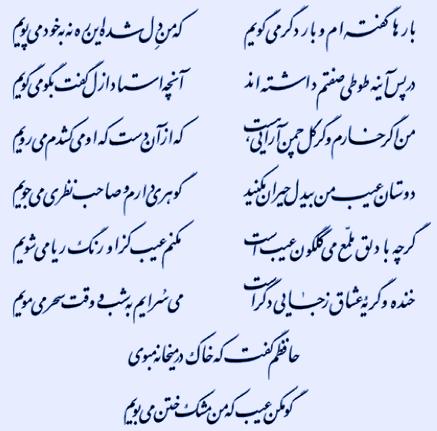 بارها گفته ام و بار دگر می گویم که من دل شده این ره نه به خود می پویم
در پس آینه طوطی صفتم داشته اند آنچه استاد ازل گفت بگو می گویم
من اگر خارم و گر گل چمن آرایی هست که از آن دست که او می کشدم می رویم
دوستان عیب من بیدل حیران مکنید گوهری دارم و صاحب نظری می جویم
گرچه با دلق ملمّع می گلگون عیب است مکنم عیب کز او رنگ ریا می شویم
خنده و گریه عشاق ز جایی دگر است می سرایم به شب و وقت سحر می مویم
حافظم گفت که خاک در میخانه مبوی
گو مکن عیب که من مشک ختن می بویم